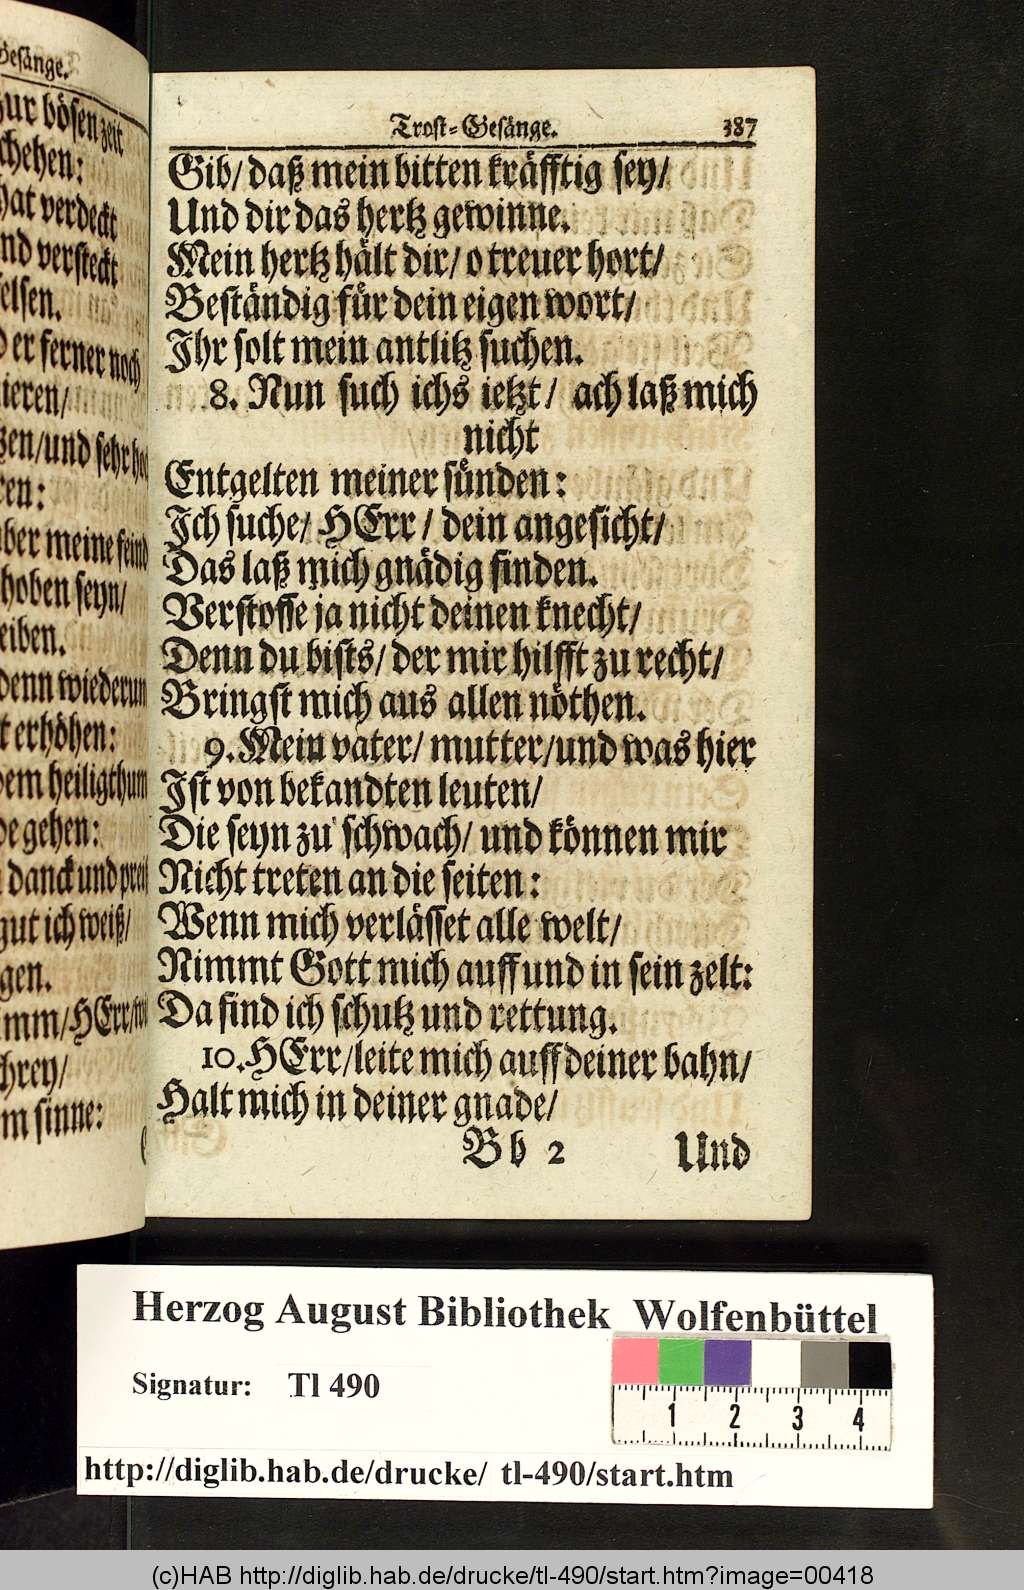 Gesänge.
zur bösen zeit
hat verdeckt
und versteckt
der ferner noch
aber meine feind
hoben seyn/
denn wiederum
erhöhen:
heiligthum
gehen:
danck und
gut ich weiß/
HErr/
sinne:
Trost-Gesänge. 387
Gib/ daß mein bitten kräfftig sey/
Und dir das hertz gewinne.
Mein hertz hält dir/ o treuer hort/
Beständig für dein eigen wort/
Ihr solt mein antlitz suchen.
8. Nun such ichs ietzt/ ach laß mich
nicht
Entgelten meiner sünden:
Ich suche/ HErr/ dein angesicht/
Das laß mich gnädig finden.
Verstosse ja nicht deinen knecht/
Denn du bists/ der mir hilfft zu recht/
Bringst mich aus allen nöthen.
9. Mein vater/ mutter/ und was hier
Ist von bekandten leuten/
Die seyn zu schwach/ und können mir
Nicht treten an die seiten:
Wenn mich verlässet alle welt/
Nimmt Gott mich auff und in sein zelt:
Da find ich schutz und rettung.
10. HErr/ leite mich auff deiner bahn/
Halt mich in deiner gnade/
Bb 2 Und
Herzog August Bibliothek Wolfenbüttel
Signatur: Tl 490
1 2 3 4
http://diglib.hab.de/drucke/ tl-490/start.htm
(c)HAB http://diglib.hab.de/drucke/tl-490/start.htm?image=00418